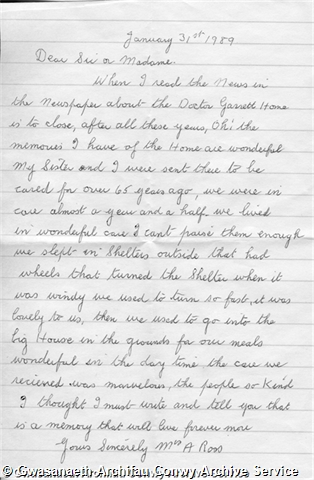 January 31st 1989
Dear Sir or Madame.
When I read the News in
the Newspaper about the Doctor Garrett Home
is to close, after all these years, Oh! the
memories I have of the Home are wonderful
My Sister and I were sent there to be
cared for over 65 years ago, we were in
care almost a year and a half we lived
in wonderful care I cant praise them enough
we slept in Shelters outside that had
wheels that turned the Shelter when it
was windy we used to turn so fast, it was
lovely to us, then we used to go into the
big House in the grounds for our meals
wonderful in the day time the care we
recieved was marvelous, the people so Kind
I thought I must write and tell you that
is a memory that will live forever more
Yours Sincerely Mrs A Ross
© Gwasanaeth Archifau Conwy Archive Service